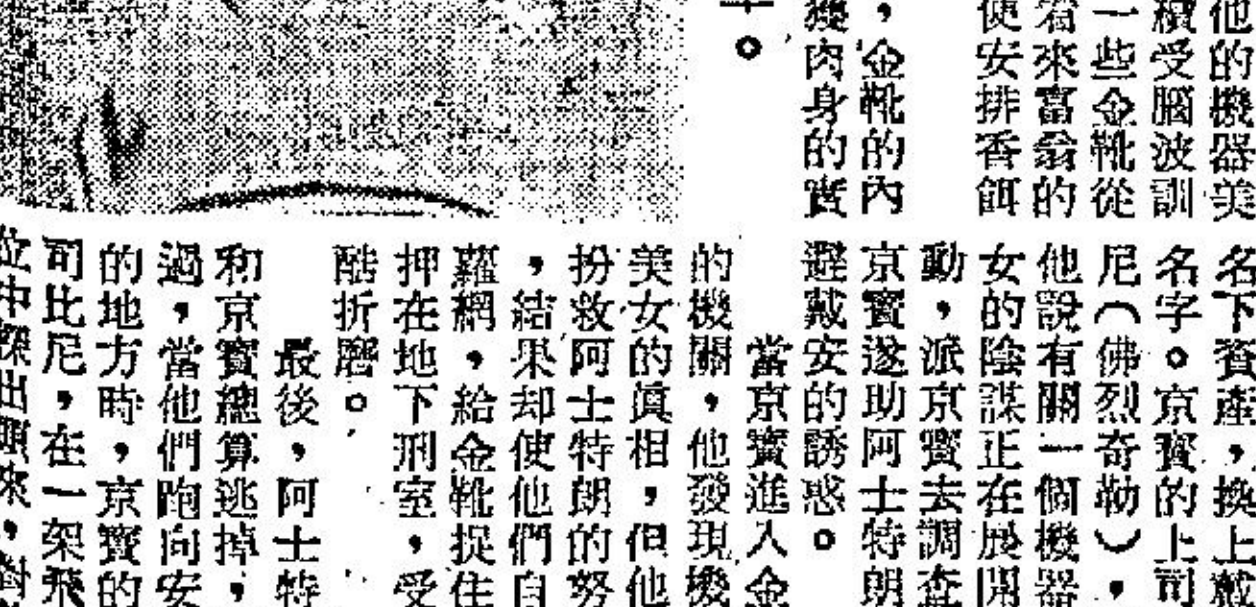 他的機器美
續受腦波訓
一些金靴從
看來富翁的
便安排香餌
，金靴的內
獲肉身的實
。
名下資產，換上戴
名字。京寶的上司
尼（佛烈奇勒），
他說有關一個機器
女的陰謀正在展開
動，派京寶去調查
京寶遂助阿士特朗
避戴安的誘惑。
當京寶進入金
的機關，他發現機
美女的眞相，但他
扮救阿士特朗的努
，結果却使他們自
羅網，給金靴捉住
押在地下刑室，受
酷折磨。
最後，阿士特
和京寶總算逃掉，
過，當他們跑向安
的地方時，京寶的
司比尼，在一架飛
位中探出頭來，對